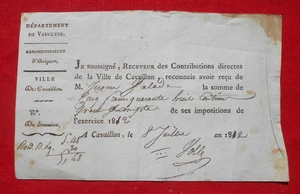 DÉPARTEMENT
DE VAUCLUSE.
ARRONDISSEMENT
d'Avignon.
VILLE
de Cavaillon.
N.º
du Sommier,
JE soussigné, RECEVEUR des Contributions directes
de la Ville de Cavaillon, reconnais avoir reçu de
M. Jerome Salade la somme de
cinq cinquante huit
de ses impositions de
l'exercice 1812
A Cavaillon, le 8 Juillet an 1812